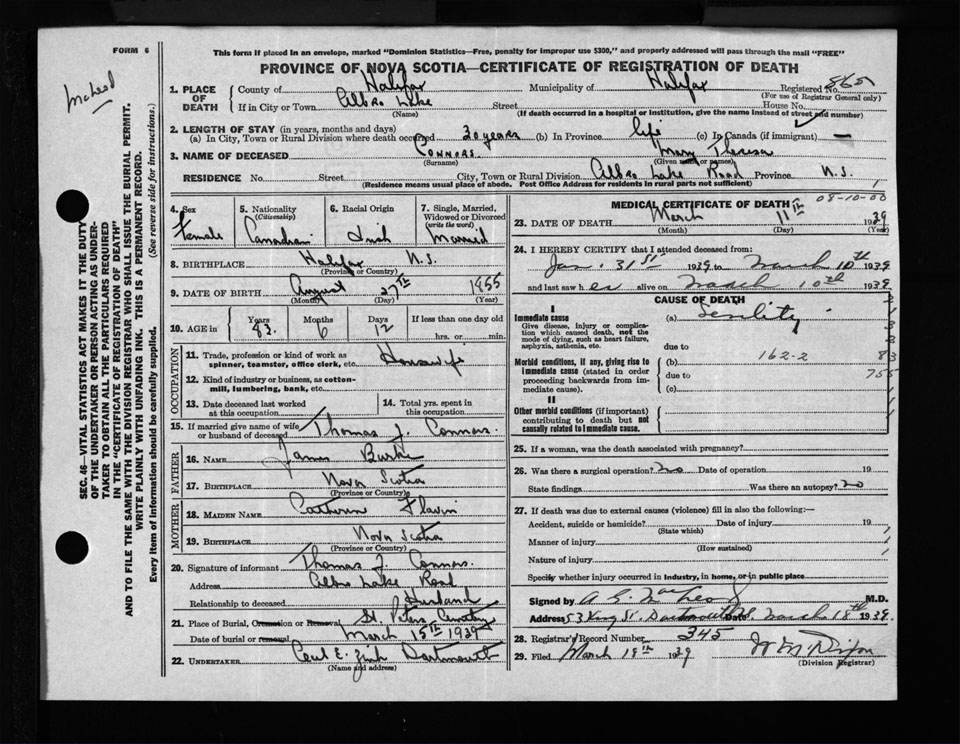 FORM 6
McLeod
SEC. 46—VITAL STATISTICS ACT MAKES IT THE DUTY
OF THE UNDERTAKER OR PERSON ACTING AS UNDER-
TAKER TO OBTAIN ALL THE PARTICULARS REQUIRED
IN THE "CERTIFICATE OF REGISTRATION OF DEATH"
AND TO FILE THE SAME WITH THE DIVISION REGISTRAR WHO SHALL ISSUE THE BURIAL PERMIT.
WRITE PLAINLY WITH UNFADING INK. THIS IS A PERMANENT RECORD.
Every item of information should be carefully supplied. (See reverse side for instructions.)
This form if placed in an envelope, marked "Dominion Statistics—Free, penalty for improper use $300," and properly addressed will pass through the mail "FREE"
PROVINCE OF NOVA SCOTIA—CERTIFICATE OF REGISTRATION OF DEATH
1. PLACE OF DEATH County of Halifax Municipality of Halifax Registered No. 865
(For use of Registrar General only)
If in City or Town Albro Lake Street House No.
(Name) (If death occurred in a hospital or institution, give the name instead of street and number)
2. LENGTH OF STAY (in years, months and days)
(a) In City, Town or Rural Division where death occurred 30 years (b) In Province life (c) In Canada (if immigrant) —
3. NAME OF DECEASED Connors Mary Theresa
(Surname) (Given name or names)
RESIDENCE No. Street City, Town or Rural Division Albro Lake Road Province N.S.
(Residence means usual place of abode. Post Office Address for residents in rural parts not sufficient)
4. Sex Female
5. Nationality (Citizenship) Canadian
6. Racial Origin Irish
7. Single, Married, Widowed or Divorced (write the word) Married
8. BIRTHPLACE Halifax N.S.
(Province or Country)
9. DATE OF BIRTH August 27TH 1855
(Month) (Day) (Year)
10. AGE in Years 83 Months 6 Days 12 If less than one day old
hrs. or min.
OCCUPATION
11. Trade, profession or kind of work as spinner, teamster, office clerk, etc. Housewife
12. Kind of industry or business, as cotton-mill, lumbering, bank, etc.
13. Date deceased last worked at this occupation
14. Total yrs. spent in this occupation
15. If married give name of wife or husband of deceased Thomas J. Connors
FATHER
16. NAME James Burke
17. BIRTHPLACE Nova Scotia
(Province or Country)
MOTHER
18. MAIDEN NAME Catherine Flavin
19. BIRTHPLACE Nova Scotia
(Province or Country)
20. Signature of informant Thomas J. Connors
Address Albro Lake Road
Relationship to deceased Husband
21. Place of Burial, Cremation or Removal St. Peters Cemetery
Date of burial or removal March 15TH 1939
22. UNDERTAKER Cecil E. Zink Dartmouth
(Name and address)
MEDICAL CERTIFICATE OF DEATH 08-10-00
23. DATE OF DEATH March 11TH 1939
(Month) (Day) (Year)
24. I HEREBY CERTIFY that I attended deceased from:
Jan. 31st 1939 to March 10th 1939
and last saw her alive on March 10th 1939
CAUSE OF DEATH
I
Immediate cause (a) Senility
Give disease, injury or complication which caused death, not the mode of dying, such as heart failure, asphyxia, asthenia, etc.
due to
Morbid conditions, if any, giving rise to immediate cause (stated in order proceeding backwards from immediate cause).
(b) 162-2 83
due to 755
(c)
II
Other morbid conditions (if important) contributing to death but not causally related to immediate cause.
25. If a woman, was the death associated with pregnancy?
26. Was there a surgical operation? no Date of operation 19
State findings Was there an autopsy? no
27. If death was due to external causes (violence) fill in also the following:—
Accident, suicide or homicide? Date of injury 19
(State which)
Manner of injury
(How sustained)
Nature of injury
Specify whether injury occurred in industry, in home, or in public place
Signed by A G MacLeod M.D.
Address 53 King St. Dartmouth N.S. Date March 18th 1939
28. Registrar's Record Number 345
29. Filed March 18th 1939 W M Dixon
(Division Registrar)